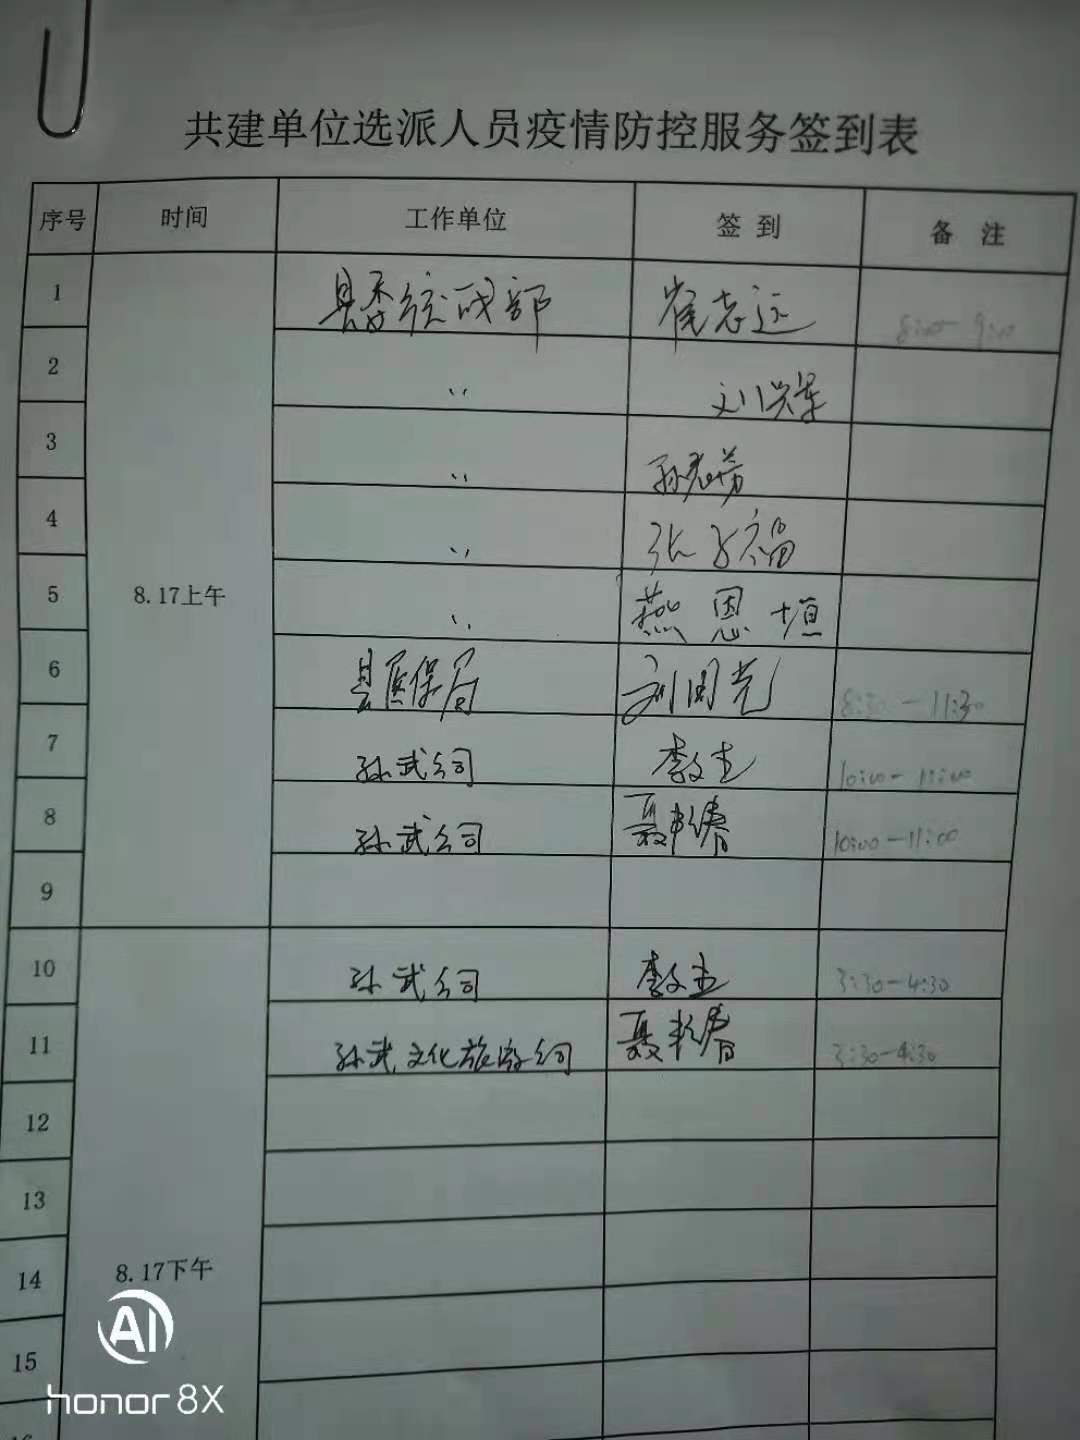 共建单位选派人员疫情防控服务签到表
序号 时间 工作单位 签到 备注
1 县委统战部 崔志远 8:00-9:00
2 〃 刘兴军
3 〃 孙
4 〃 张子福
5 8.17上午 〃 燕恩垣
6 县医保局 刘国光 8:30-11:30
7 孙武公司 李文杰 10:00-11:00
8 孙武公司 聂春 10:00-11:00
9
10 孙武公司 李文杰 3:30-4:30
11 孙武文化旅游公司 聂春 3:30-4:30
12
13
14 8.17下午
15
AI
honor 8X